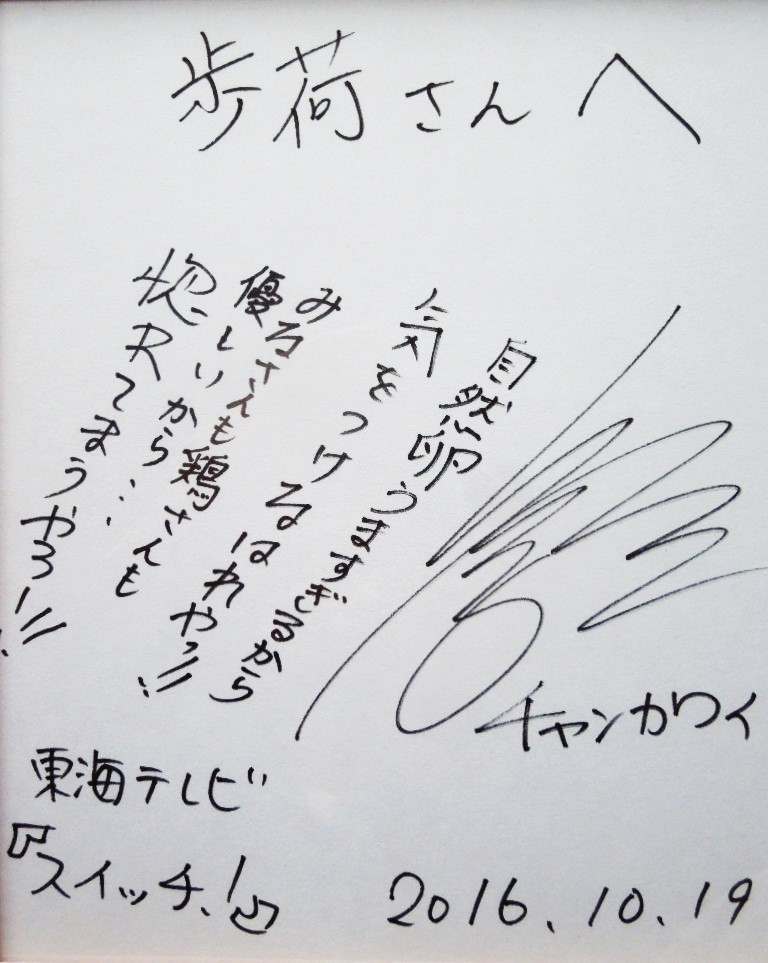 歩荷さんへ
自然卵うますぎるから
気をつけるはれやっ!!
みるさんも鶏さんも
優しいから…
惚れてまうやろー!!
チャンカワイ
東海テレビ
『スイッチ!』
2016.10.19